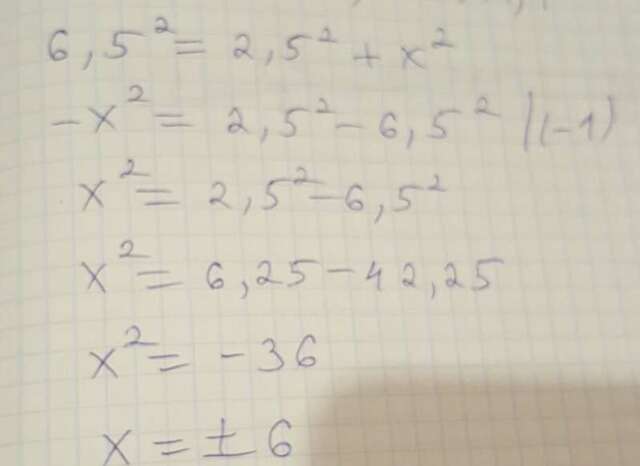 6,5² = 2,5² + x²
-x² = 2,5² - 6,5² |(-1)
x² = 2,5² - 6,5²
x² = 6,25 - 42,25
x² = -36
x = ± 6